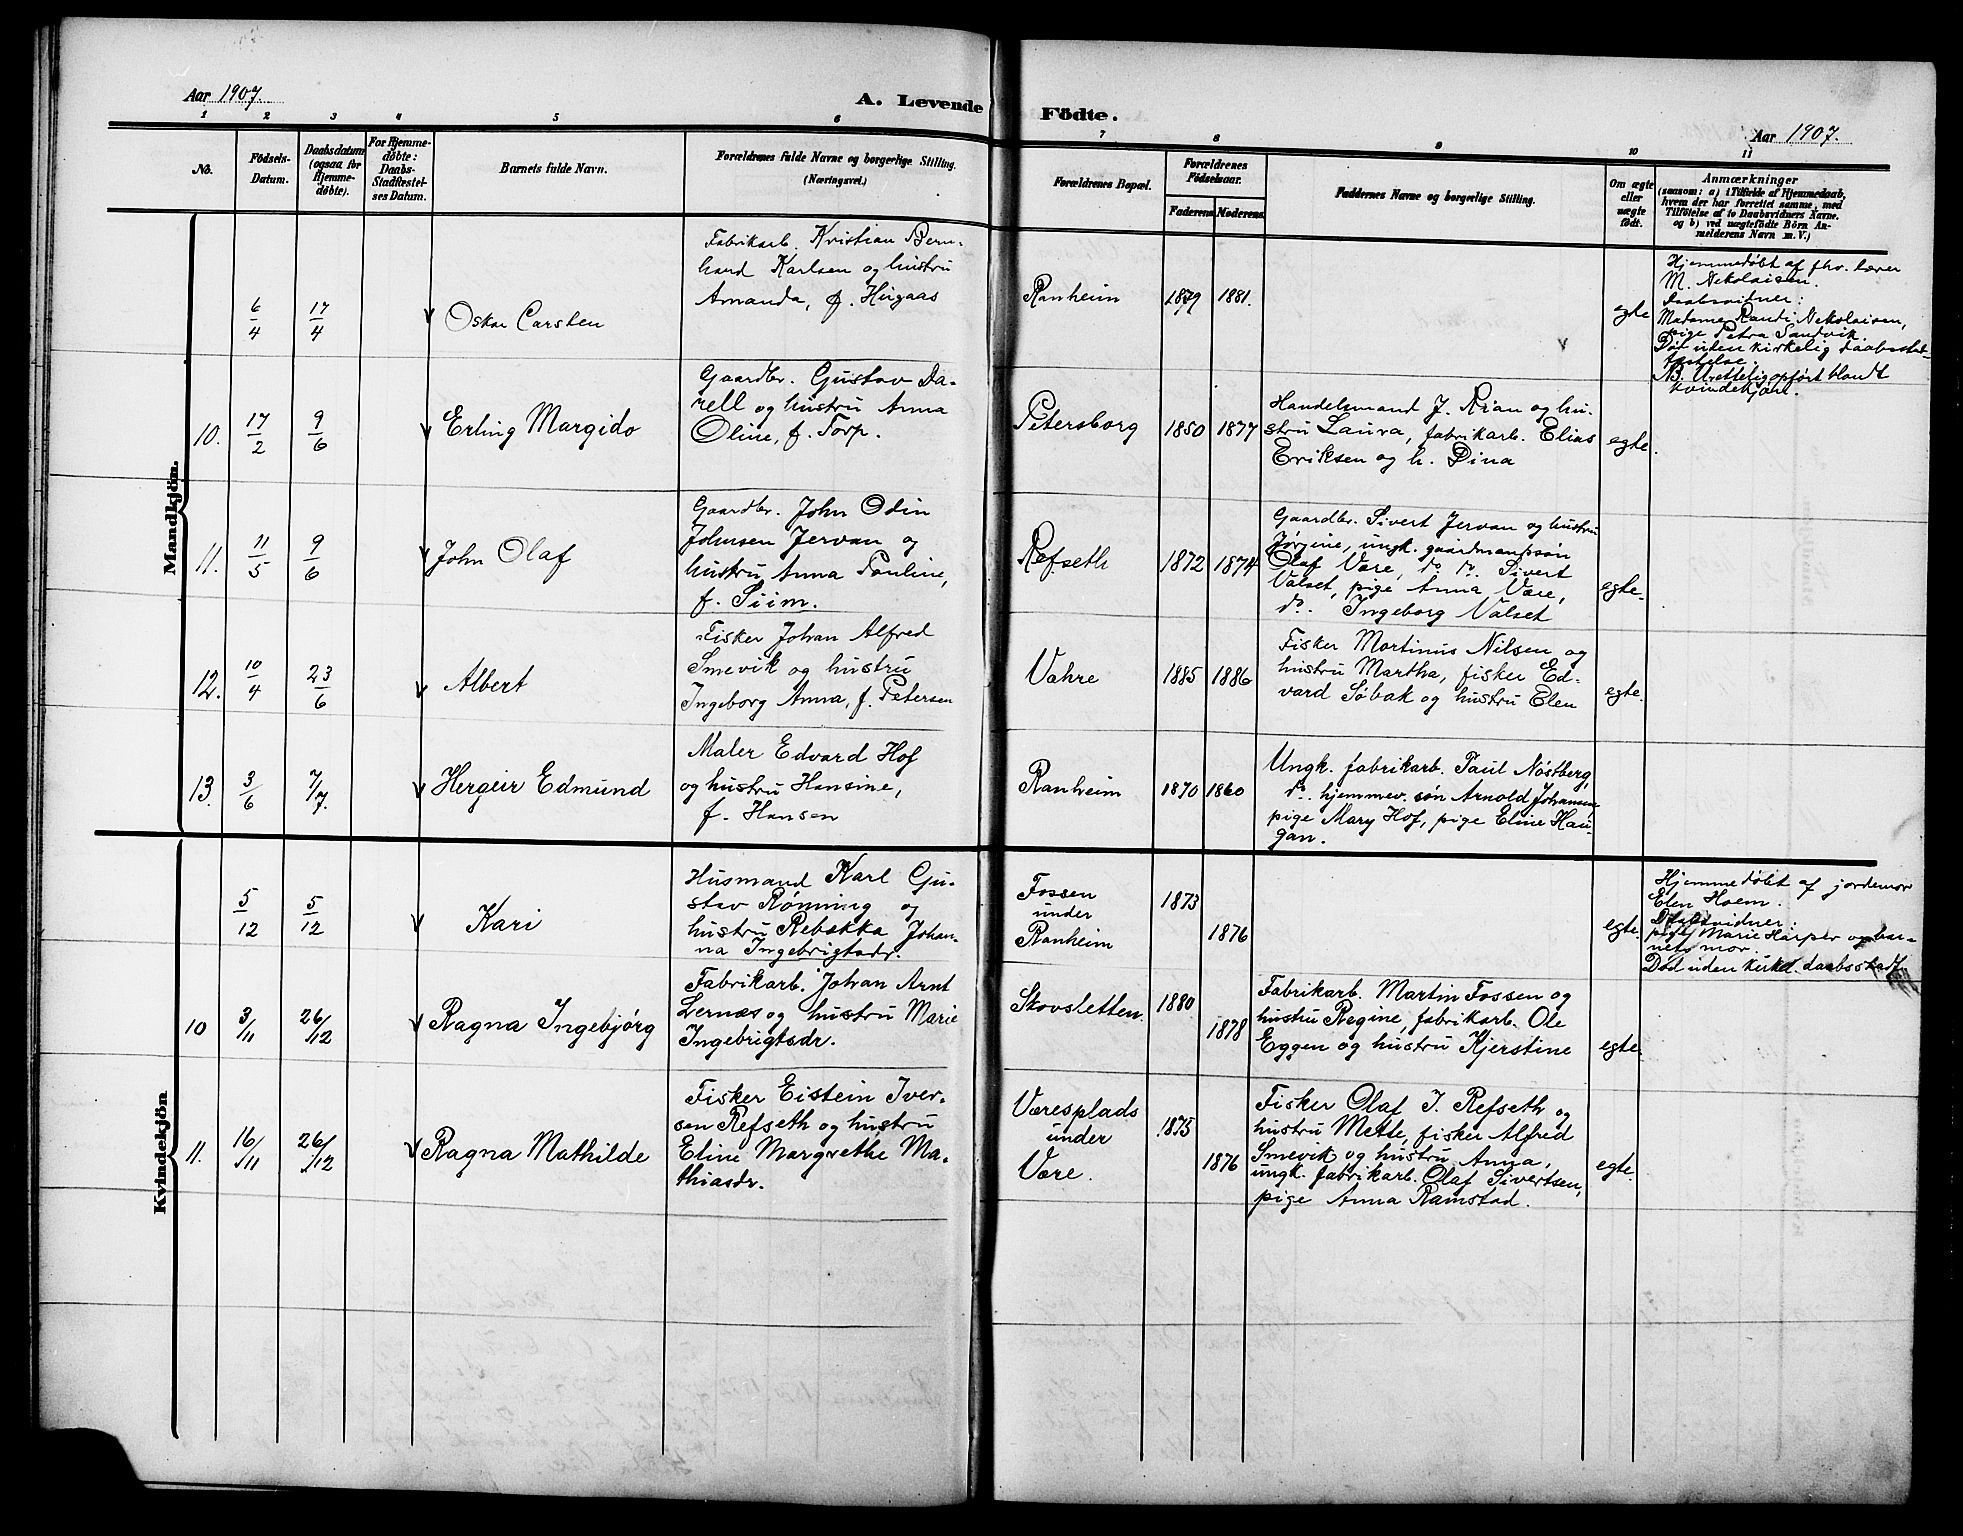 Aar 1907.
A. Levende
Födte.
Aar 1907.
1 2 3 4 5 6 7 8 9 10 11
No.
Födsels-
Datum.
Daabsdatum
(ogsaa for
Hjemme-
døbte).
For Hjemme-
døbte:
Daabs-
Stadfæstel-
ses Datum.
Barnets fulde Navn.
Forældrenes fulde Navne og borgerlige Stilling.
(Næringsvei.)
Forældrenes Bopæl.
Forældrenes
Födselsaar.
Faderens
Moderens
Faddernes Navne og borgerlige Stilling.
Om ægte
eller
uægte
født.
Anmærkninger
(saasom: a) i Tilfælde af Hjemmedaab,
hvem der har forrettet samme, med
Tilføielse af to Daabsvidners Navne.
og b) ved uægtefödte Börn An-
melderens Navn m. V.)
Mandkjön.
6/4
17/4
Oskar Carsten
Fabrikarb. Kristian Bern-
hard Karlsen og hustru
Amanda, f. Hugaas
Ranheim
1879
1881.
egte
Hjemmedøbt af fhv. lærer
M. Nikolaisen.
Daabsvidner:
Madame Randi Nikolaisen,
pige Petra Sandvik.
Død uden kirkelig daabsstad-
fæstelse.
NB. Urettelig opført blandt
kvindekjøn.
10.
17/2
9/6
Erling Margido
Gaardbr. Gustav Da-
rell og hustru Anna
Oline, f. Torp.
Petersborg
1850
1877
Handelsmand J. Rian og hu-
stru Laura, fabrikarb. Elias
Eriksen og h. Dina
egte.
11.
11/5
9/6
John Olaf
Gaardbr. John Odin
Johnsen Jervan og
hustru Anna Pauline,
f. Siim.
Refseth
1872
1874
Gaardbr. Sivert Jervan og hustru
Jørgine, ungk. gaardmandssøn
Olaf Være, do. do. Sivert
Valset, pige Anna Være,
do. Ingeborg Valset
egte.
12.
10/4
23/6
Albert
Fisker Johan Alfred
Smevik og hustru
Ingeborg Anna, f. Petersen
Vahre
1885
1886
Fisker Martinus Nilsen og
hustru Martha, fisker Ed-
vard Søbak og hustru Elen
egte.
13.
3/6
7/7.
Hergeir Edmund
Maler Edvard Hof
og hustru Hansine,
f. Hansen
Ranheim
1870
1860
Ungk. fabrikarb. Paul Nøstberg,
do. hjemmev. søn Arnold Johansen
pige Mary Hof, pige Eline Hau-
gan.
Kvindekjön
5/12
5/12
Kari
Husmand Karl Gu-
stav Rønning og
hustru Rebekka Johan-
na Ingebrigtsdr.
Fossen
under
Ranheim
1873
1876
egte.
Hjemmedøbt af jordemor
Elen Hoem.
Daabsvidner:
pige Marie Harper og bar-
nets mor.
Død uden kirkel. daabsstadf.
10
3/11
26/12
Ragna Ingebjørg
Fabrikarb. Johan Arnt
Lernæs og hustru Marie
Ingebrigtsdr.
Skovsletten.
1880
1878
Fabrikarb. Martin Fossen og
hustru Regine, fabrikarb. Ole
Eggen og hustru Kjerstine
egte.
11.
16/11
26/12
Ragna Mathilde
Fisker Eistein Iver-
sen Refseth og hustru
Eline Margrethe Ma-
thiasdr.
Væresplads
under
Være.
1875
1876
Fisker Olaf I. Refseth og
hustru Mette, fisker Alfred
Smevik og hustru Anna,
ungk. fabrikarb. Olaf Sivertsen,
pige Anna Ramstad.
egte.